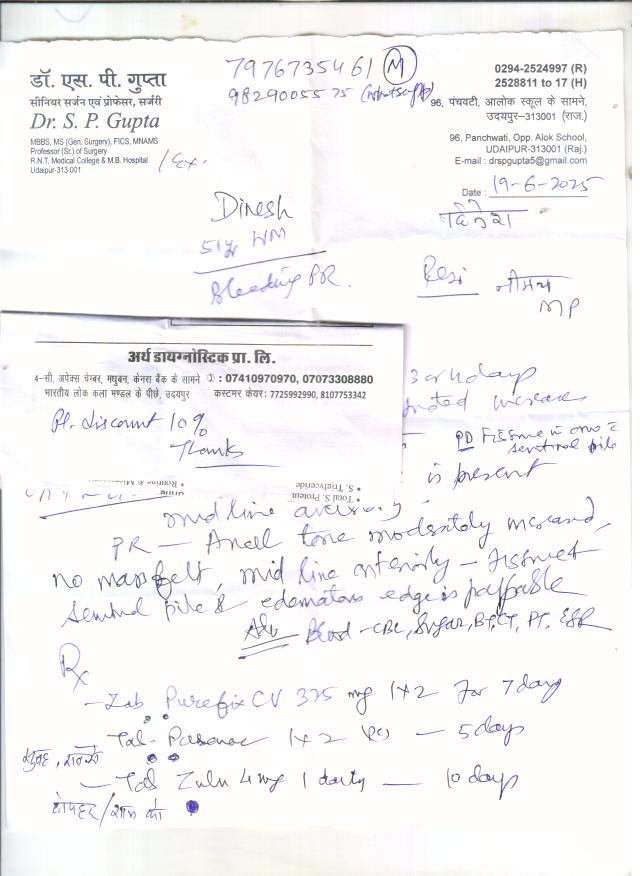 7976735461 (M)
9829005575 (whatsapp)
डॉ. एस. पी. गुप्ता
सीनियर सर्जन एवं प्रोफेसर, सर्जरी
Dr. S. P. Gupta
MBBS, MS (Gen. Surgery), FICS, MNAMS
Professor (Sr.) of Surgery
R.N.T. Medical College & M.B. Hospital
Udaipur-313 001
/Ex.
0294-2524997 (R)
2528811 to 17 (H)
96, पंचवटी, आलोक स्कूल के सामने,
उदयपुर–313001 (राज.)
96, Panchwati, Opp. Alok School,
UDAIPUR-313001 (Raj.)
E-mail : drspgupta5@gmail.com
Date : 19-6-2025
Dinesh
दिनेश
51yr HM
Bleeding PR.
Resi नीमच
MP
अर्थ डायग्नोस्टिक प्रा. लि.
4–सी, अपेक्स चेम्बर, मधुबन, केनरा बैंक के सामने : 07410970970, 07073308880
भारतीय लोक कला मण्डल के पीछे, उदयपुर कस्टमर केयर: 7725992990, 8107753342
Pl. discount 10%
Thanks
3 or 4 days
increase
PD Fissure in ano c
sentinel pile
is present
• Total S. Protein
• S. Triglyceride
Urine
• Routine &
mid line
PR — Anal tone moderately increased,
no mass felt, mid line anteriorly — Fissure +
Sentinel pile & edematous edge is palpable
Adv Blood - CBC, Sugar, BT, CT, PT, ESR
Rx
- Tab Purefix CV 325 mg 1x2 for 7 day
Tab 1x2 — 5 days
सुबह, शाम को
- Tab Zulu 4 mg 1 daily — 10 days
दोपहर/शाम को